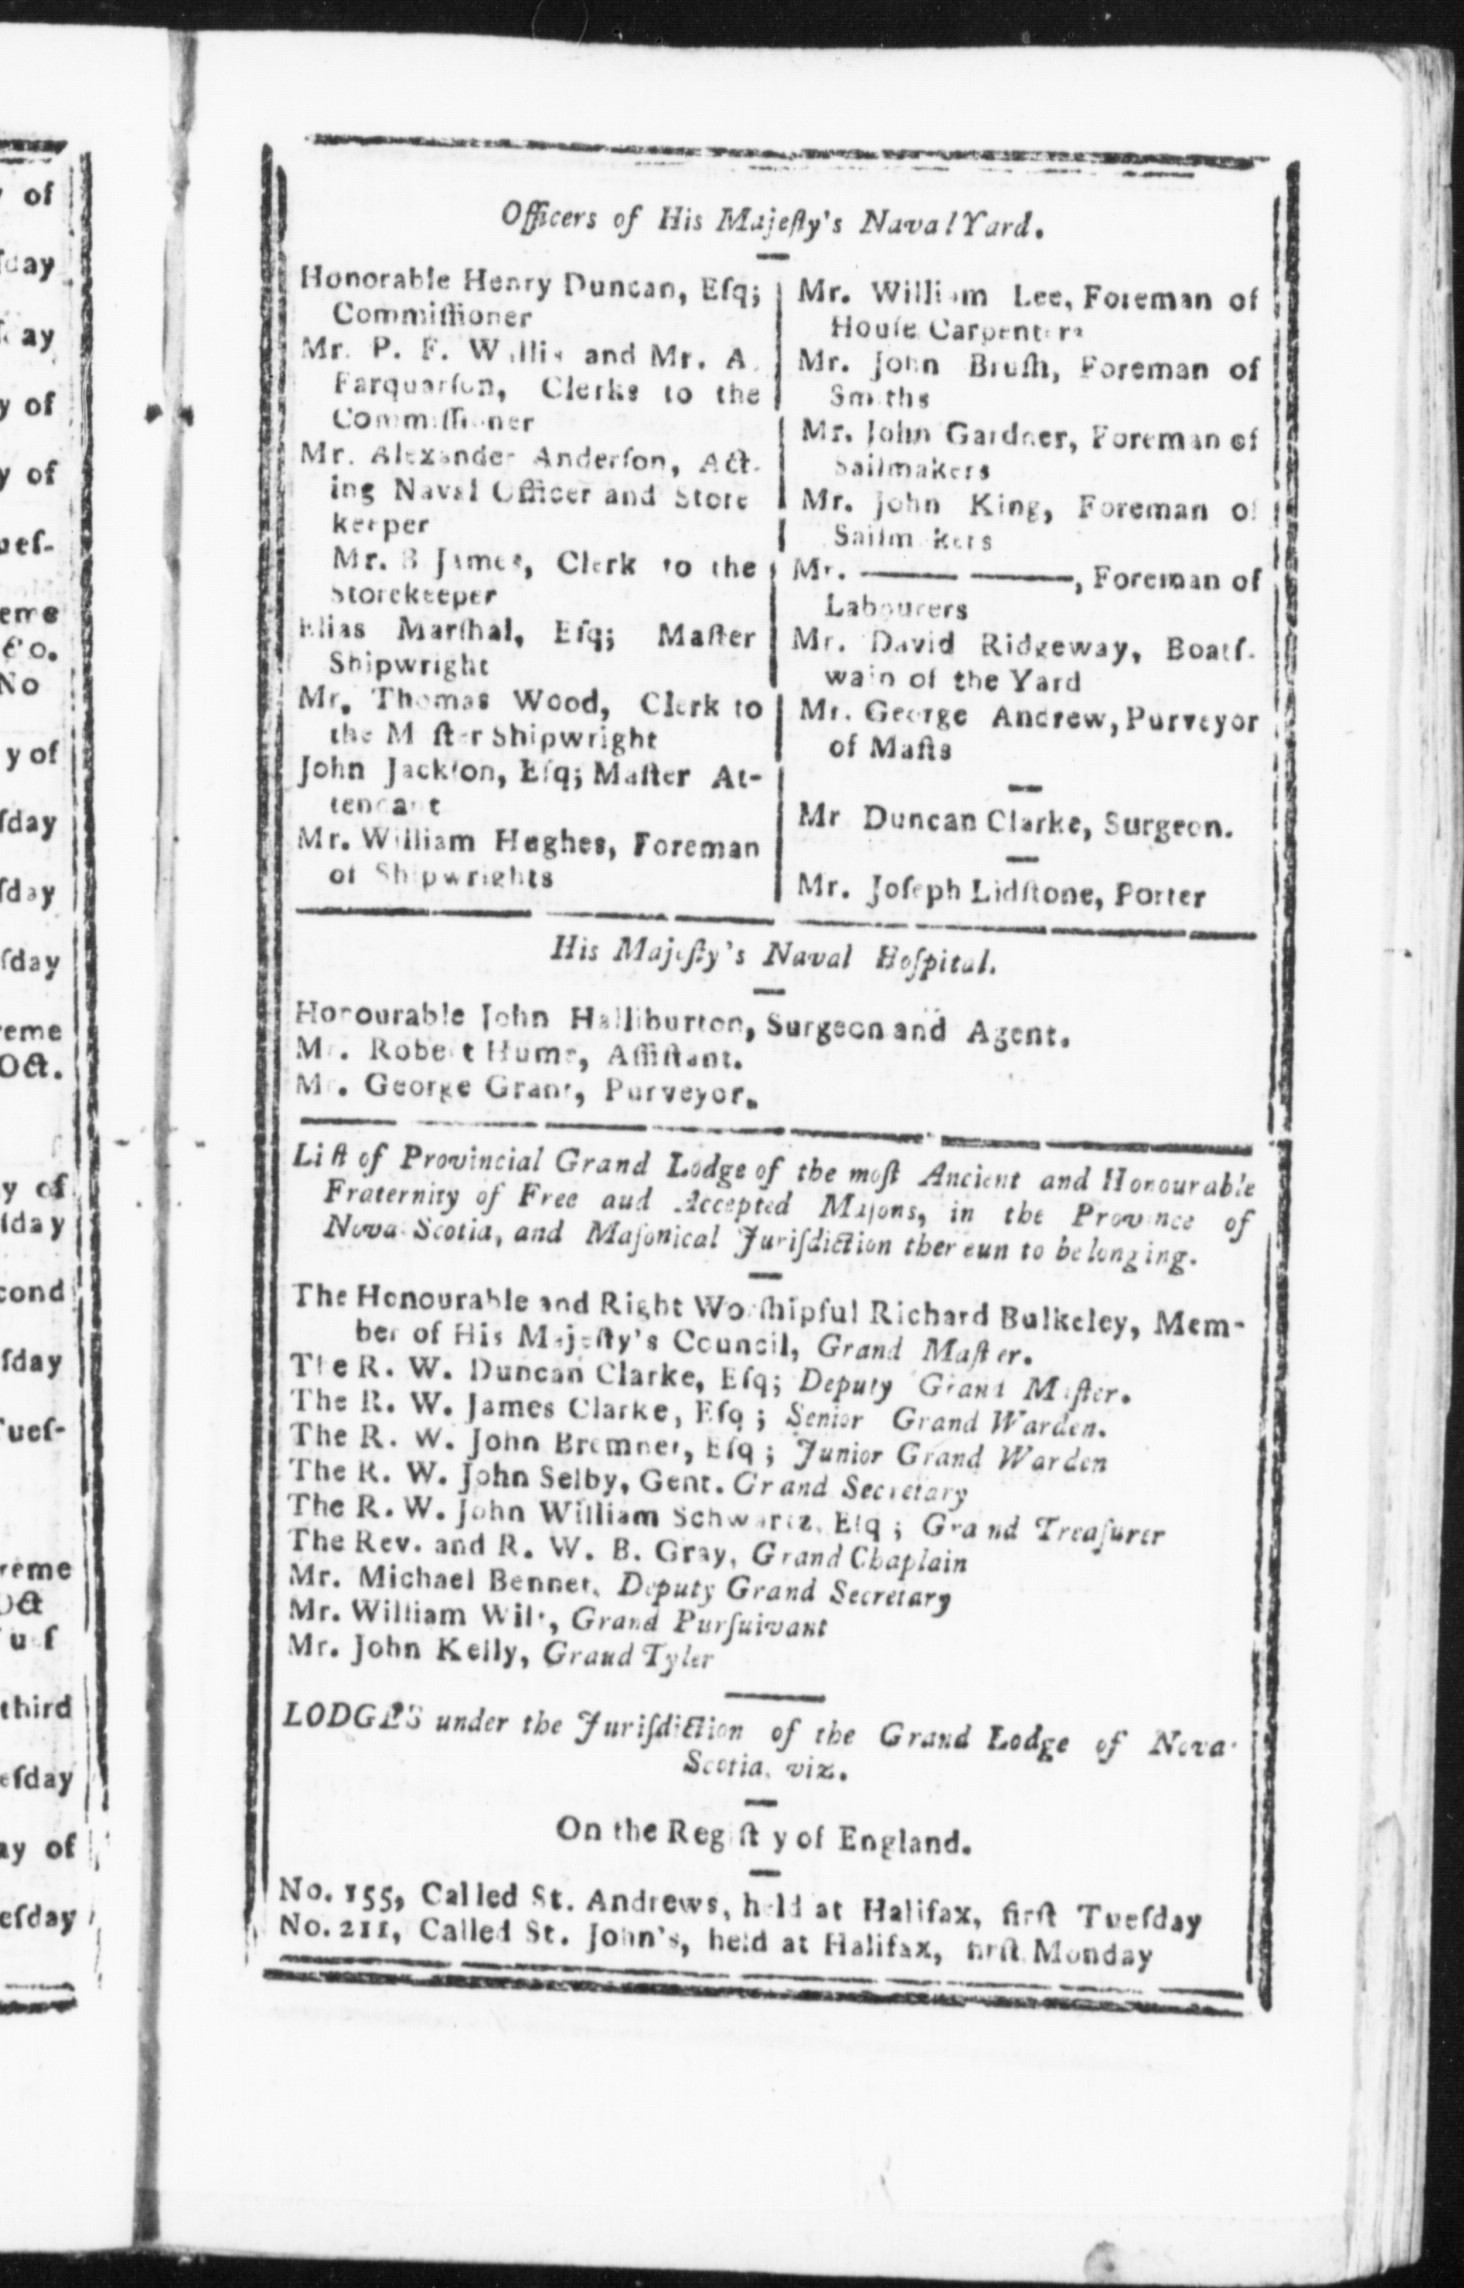 Officers of His Majeſty's Naval Yard.
Honorable Henry Duncan, Eſq;
Commiſſioner
Mr. P. F. Wallis and Mr. A.
Farquarſon, Clerks to the
Commiſſioner
Mr. Alexander Anderſon, Act-
ing Naval Officer and Store
keeper
Mr. B James, Clerk to the
Storekeeper
Elias Marſhal, Eſq; Maſter
Shipwright
Mr. Thomas Wood, Clerk to
the Maſter Shipwright
John Jackſon, Eſq; Maſter At-
tendant
Mr. William Hughes, Foreman
of Shipwrights
Mr. William Lee, Foreman of
Houſe Carpenters
Mr. John Bruſh, Foreman of
Smiths
Mr. John Gardner, Foreman of
Sailmakers
Mr. John King, Foreman of
Sailmakers
Mr. —— ——, Foreman of
Labourers
Mr. David Ridgeway, Boatſ-
wain of the Yard
Mr. George Andrew, Purveyor
of Maſts
Mr Duncan Clarke, Surgeon.
Mr. Joſeph Lidſtone, Porter
His Majeſty's Naval Hoſpital.
Honourable John Halliburton, Surgeon and Agent.
Mr. Robert Hume, Aſſiſtant.
Mr. George Grant, Purveyor.
Liſt of Provincial Grand Lodge of the moſt Ancient and Honourable
Fraternity of Free aud Accepted Maſons, in the Province of
Nova-Scotia, and Maſonical Juriſdiction thereunto belonging.
The Honourable and Right Worſhipful Richard Bulkeley, Mem-
ber of His Majeſty's Council, Grand Maſter.
The R. W. Duncan Clarke, Eſq; Deputy Grand Maſter.
The R. W. James Clarke, Eſq; Senior Grand Warden.
The R. W. John Bremner, Eſq; Junior Grand Warden
The R. W. John Selby, Gent. Grand Secretary
The R. W. John William Schwartz, Eſq; Grand Treaſurer
The Rev. and R. W. B. Gray, Grand Chaplain
Mr. Michael Bennet, Deputy Grand Secretary
Mr. William Grand Purſuivant
Mr. John Kelly, Graud Tyler
LODGES under the Juriſdiction of the Grand Lodge of Nova-
Scotia, viz.
On the Regiſtry of England.
No. 155, Called St. Andrews, held at Halifax, firſt Tueſday
No. 211, Called St. John's, held at Halifax, firſt Monday